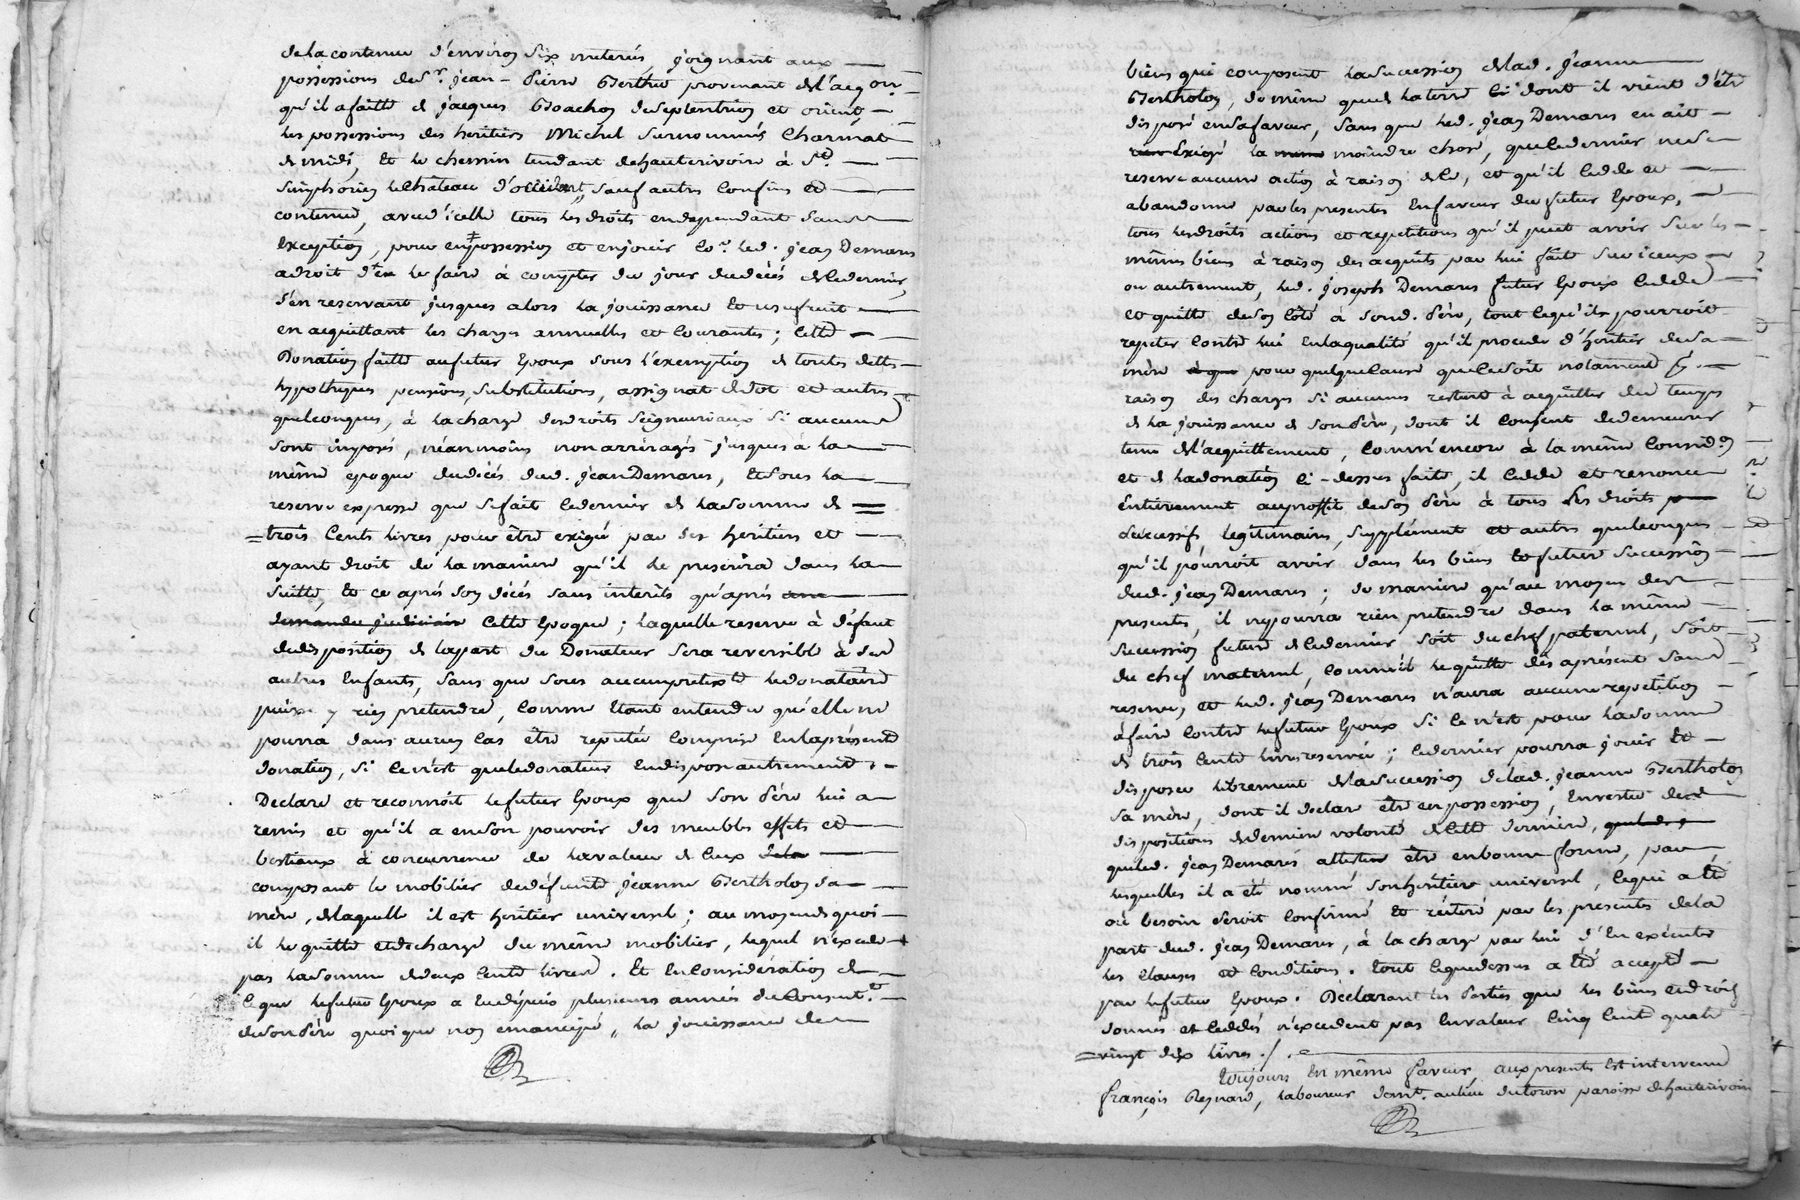 de la contenue d'environ six meterés, joignant aux
possessions de Sr. jean-Pierre Berthe provenant de l'acq.on
qu'il a faitte de jacques Goachon de septentrion et orient
les possessions des heritiers Michel surnommés Charmat
de midi, et le chemin tendant de hauterivoire à St.
Simphorien le Chateau d'occident, sauf autres Confins et
contenue, avec d'icelle tous les droits en dependant sans
exception, pour en possession et en jouir led. jean Demares
a droit de le faire à compter du jour du décés de le dernier,
s'en reservant jusques alors la jouissance et usufruit
en acquittant les charges annuelles et Courantes; Cette
Donation faitte au futur Epoux sous l'exemption de toutes dettes
hypotheques pensions, substitutions, assignat de dot et autres
quelconques, à la charge des droits seigneuriaux si aucuns
sont imposés, néanmoins non arréragés jusques à la
même epoque du décés dud. jean Demares, et sous la
reserve expresse que se fait le dernier de la somme de
trois Cents livres, pour être exigée par ses heritiers et
ayant droit de la maniere qu'il le prescrira dans la
suitte, et ce aprés son décés sans interêts qu'aprés
demande judiciaire Cette Epoque; laquelle reserve à défaut
de disposition de la part du Donateur sera reversible à ses
autres Enfants, sans que sous aucun pretexte le donataire
puisse y rien pretendre, Comme Etant entendu qu'elle ne
pourra dans aucun Cas être reputée Comprise En la présente
donation, si ce n'est que le donateur En dispose autrement.
Declare et reconnoit le futur Epoux que son Pére lui a
remis et qu'il a en son pouvoir des meubles effets et
bestiaux à concurrence de la valeur de Ceux
composant le mobilier de défunte jeanne Bertholon sa
mére, de laquelle il est heritier universel; au moyen de quoi
il le quitte et décharge du même mobilier, lequel n'excede
pas la somme de deux Cents livres. Et En Considération de
ce que le futur Epoux a Eu depuis plusieurs années du Consent.t
de son Pére quoique non emancipé, la jouissance des
biens qui composent la succession de lad. jeanne
Bertholon, de même que de la terre ci dont il vient d'être
disposé en sa faveur, sans que led. jean Demares en ait
Exigé la moindre chose, que le dernier ne se
reserve aucune action à raison de ce, et qu'il Cedde et
abandonne par les presentes En faveur du futur Epoux,
tous les droits actions et repetitions qu'il peut avoir sur les
mêmes biens à raison des acquits par lui fait sur iceux
ou autrement, led. joseph Demares futur Epoux Cedde
et quitte de son Côté à sond. Pére, tout Ce qu'il pourroit
repeter Contre lui En la qualité qu'il procede d'heritier de sa
mére pour quelque Cause que Ce soit notament
raison des charges si aucunes restent à acquitter du temps
de la jouissance de son Pére, dont il Consent de demeurer
tenu de l'acquittement, Comm'encore à la même Consid.on
et de la donation Ci-dessus faite, il Cedde et renonce
Entierement au proffit de son Pére à tous Ses droits
succéssifs legitimaires, supplément et autres quelconques
qu'il pourroit avoir dans les biens et future succession
dud. jean Demares; de maniere qu'au moyen des
presentes, il ne pourra rien pretendre dans la même
succession future de Ce dernier soit du chef paternel, soit
du chef maternel, Comm'il le quitte dès aprésent sans
reserve, et led. jean Demares n'aura aucune repetition
à faire Contre le futur Epoux si Ce n'est pour la somme
de trois Cents livres reservée; Ce dernier pourra jouir et
disposer librement de la succession de lad. jeanne Bertholon
sa mére, dont il declare être en possession, En vertu des
dispositions de derniere volonté de Cette derniere,
que led. jean Demares atteste être en bonne forme, par
lesquelles il a été nommé son heritier universel, Ce qui a été
où besoin seroit Confirmé et réiteré par les presentes de la
part dud. jean Demares, à la charge par lui d'En exécuter
les clauses et Conditions. tout Ce que dessus a été accepté
par le futur Epoux. Déclarant les Parties que les biens et droits
donnés et Ceddés n'excedent pas En valeur Cinq Cents quatre
vingt dix livres./.
toujours En même faveur, aux presentes Est intervenu
françois Reynard, laboureur demt. au lieu du toron paroisse de hauterivoire